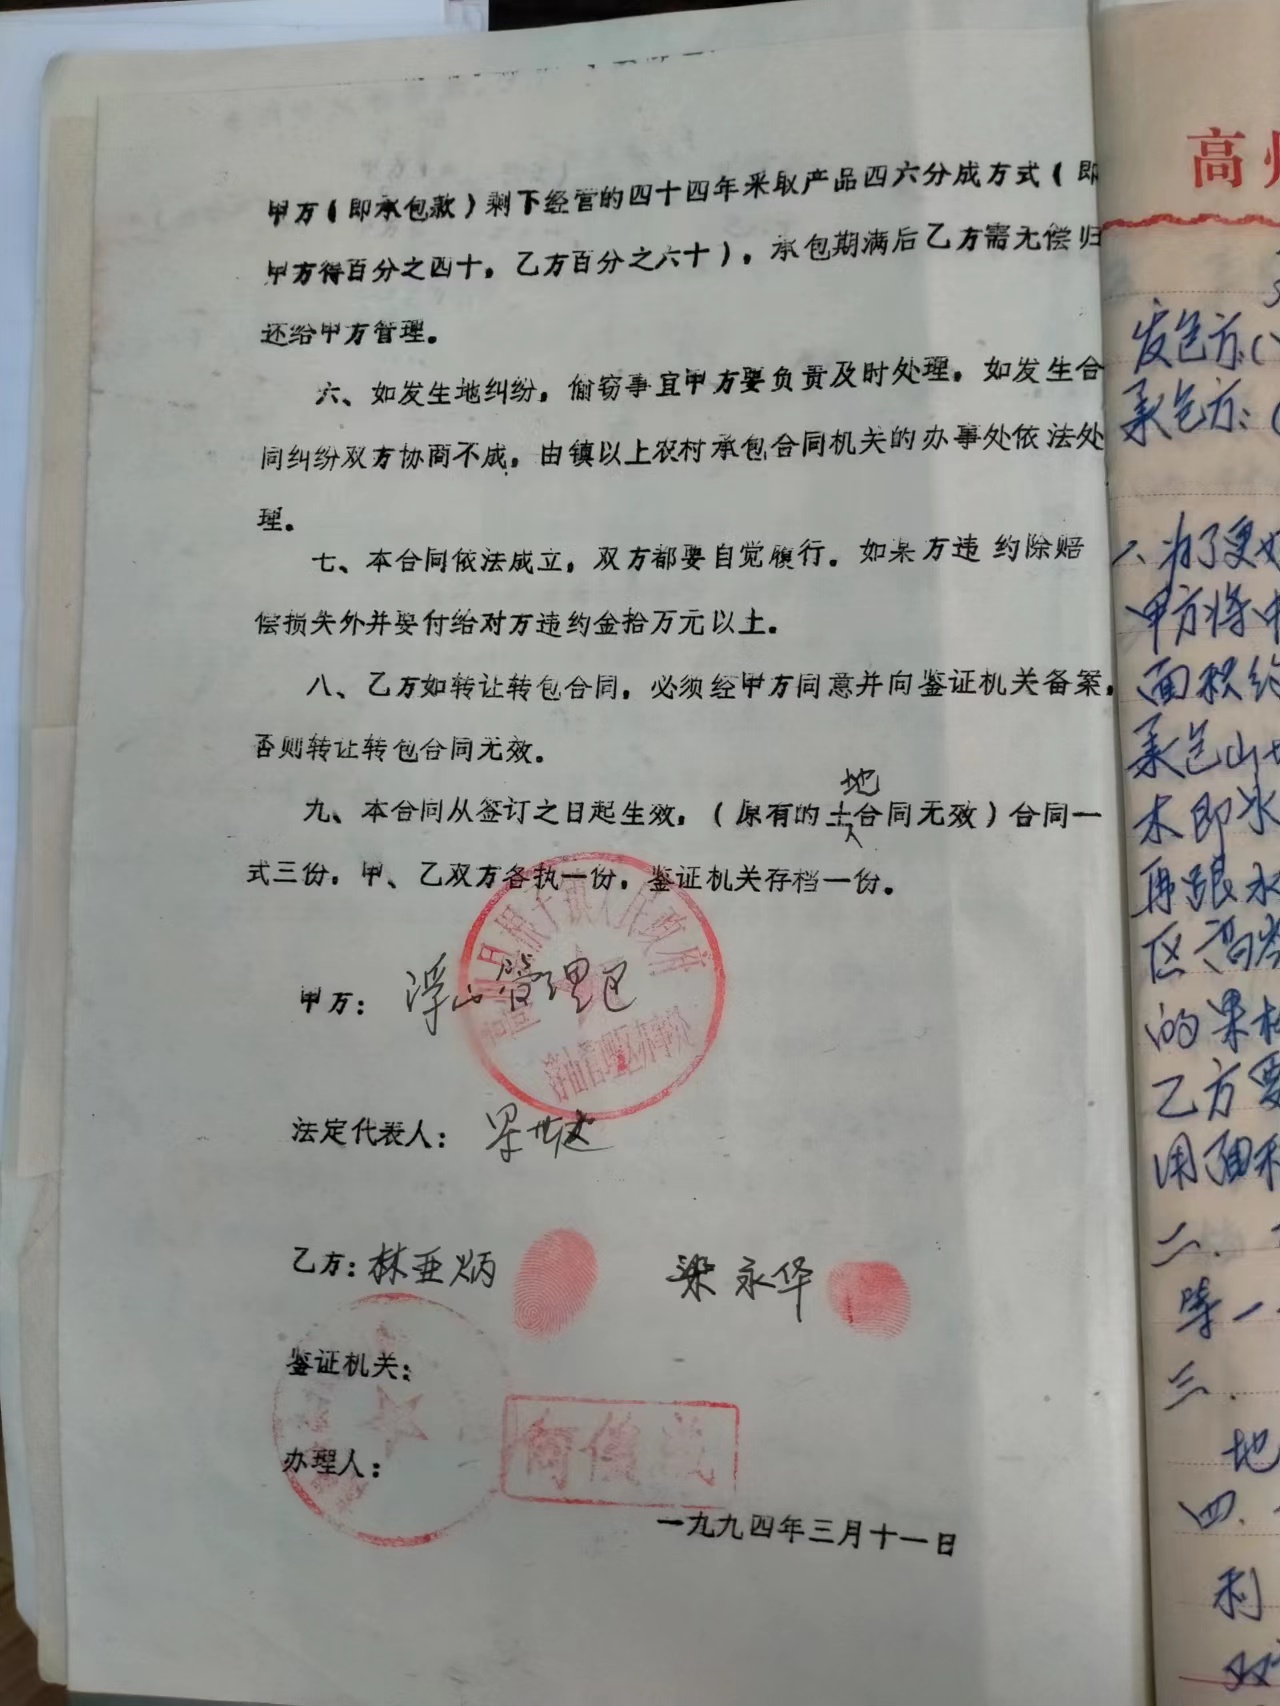 甲方(即承包款)剩下经营的四十四年采取产品四六分成方式(即
甲方得百分之四十,乙方百分之六十),承包期满后乙方需无偿归
还给甲方管理。
六、如发生地纠纷,偷窃事宜甲方要负责及时处理,如发生合
同纠纷双方协商不成,由镇以上农村承包合同机关的办事处依法处
理。
七、本合同依法成立,双方都要自觉履行。如果方违约除赔
偿损失外并要付给对方违约金拾万元以上。
八、乙方如转让转包合同,必须经甲方同意并向鉴证机关备案,
否则转让转包合同无效。
九、本合同从签订之日起生效,(原有的土地合同无效)合同一
式三份,甲、乙双方各执一份,鉴证机关存档一份。
甲方:浮山管理区
镇人民政府
浮山管理区办事处
法定代表人:
乙方:林亚炳 梁永华
鉴证机关:
办理人:
一九九四年三月十一日
高州
发包方:(
承包方:(
一、为了更好
甲方将中
面积约
承包山地
木即水
再跟水
区高岑
的果林
乙方要
用面积
二、
等一
三、
地
四、
利
双方